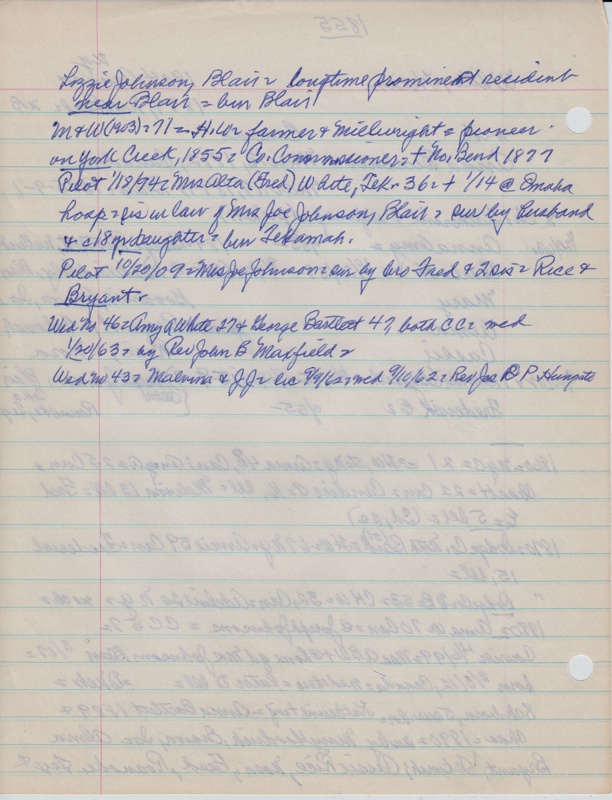 1855
Lizzie Johnson, Blair = longtime prominent resident
near Blair = bur Blair
M & W (1903) = 71 = H.W = farmer & Millwright = pioneer
on York Creek, 1855 = Co. Commissioner = + No. Bend 1877
Pilot 1/18/94 = Mrs Alta (Fred) White, Tek = 36 = + 1/14 @ Omaha
hosp = sis in law of Mrs Joe Johnson, Blair = sur by husband
& c18m daughter = bur Tekamah.
Pilot 10/20/09 = Mrs Joe Johnson = sur by bro Fred & 2 sis = Rice &
Bryant =
Wed No 46 = Amy A White 27 & George Bartlett 47, both CC = med
1/20/63 = by Rev John B Maxfield =
Wed No 43 = Malvina & J.J = lic 9/9/62 = med 9/10/62 = Rev Jas P